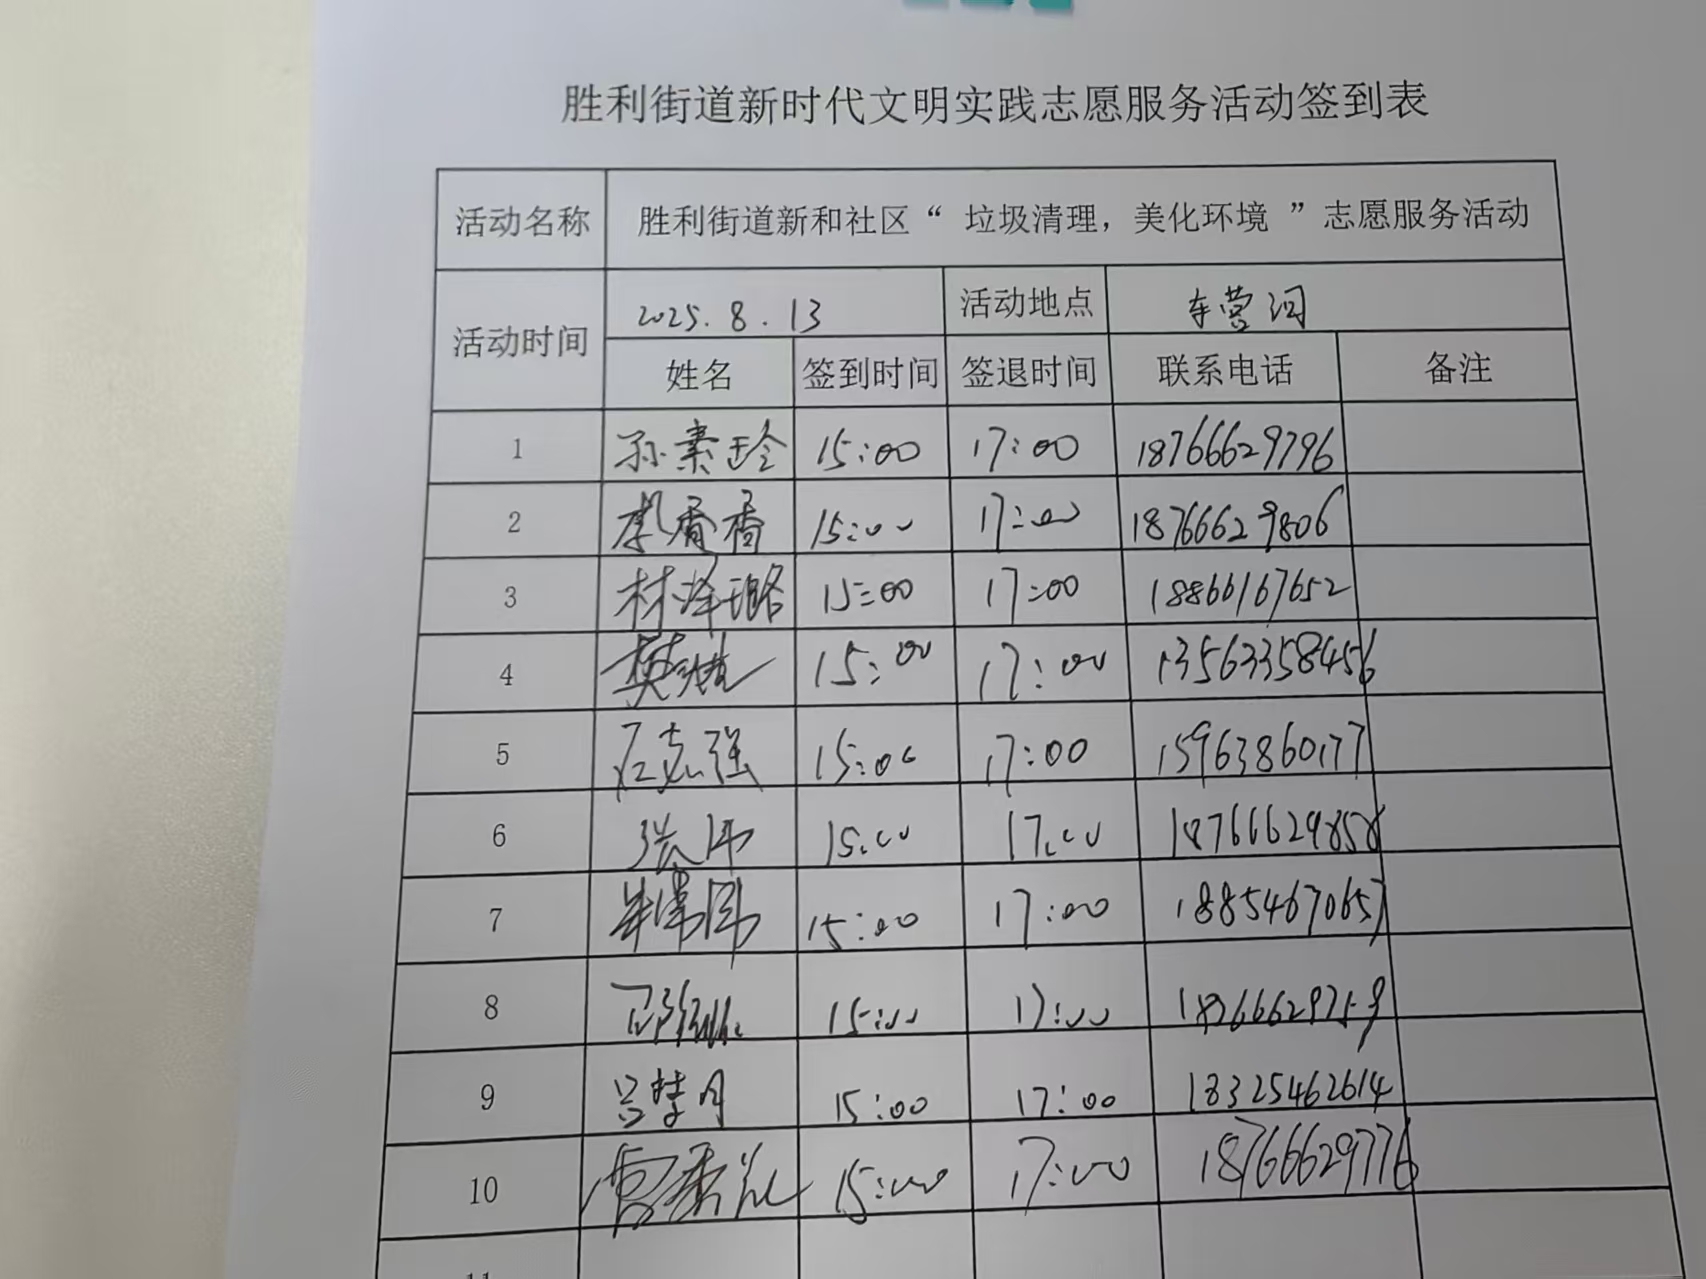 胜利街道新时代文明实践志愿服务活动签到表
活动名称 胜利街道新和社区“ 垃圾清理，美化环境 ”志愿服务活动
活动时间 2025.8.13 活动地点 车营河
姓名 签到时间 签退时间 联系电话 备注
1 孙素玲 15:00 17:00 18766629796
2 李香香 15:00 17:00 18766629806
3 林泽璐 15:00 17:00 18866167652
4 15:00 17:00 13563358456
5 石志强 15:00 17:00 15963860177
6 张伟 15:00 17:00 18766629858
7 15:00 17:00 18854670657
8 15:00 17:00 18766629759
9 吕梦月 15:00 17:00 18325462614
10 15:00 17:00 18766629776
11